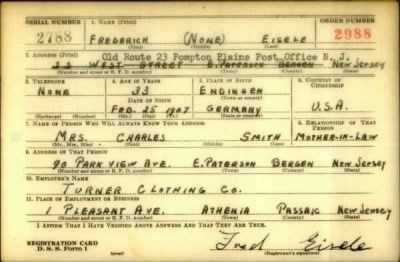 SERIAL NUMBER 1. NAME (Print) ORDER NUMBER
2788 FREDERICK (NONE) EISELE 2988
(First) (Middle) (Last)
2. ADDRESS (Print) Old Route 23 Pompton Plains Post Office N. J.
22 WEST STREET E. PATERSON BERGEN NEW JERSEY
(Number and street or R. F. D. number) (Town) (County) (State)
3. TELEPHONE 4. AGE IN YEARS 5. PLACE OF BIRTH 6. COUNTRY OF CITIZENSHIP
NONE 33 ENDINGEN
DATE OF BIRTH (Town or county)
FEB. 25 1907 GERMANY U.S.A.
(Exchange) (Number) (Mo.) (Day) (Yr.) (State or country)
7. NAME OF PERSON WHO WILL ALWAYS KNOW YOUR ADDRESS 8. RELATIONSHIP OF THAT PERSON
MRS. CHARLES SMITH MOTHER-IN-LAW
(Mr., Mrs., Miss) (First) (Middle) (Last)
9. ADDRESS OF THAT PERSON
90 PARK VIEW AVE. E. PATERSON BERGEN NEW JERSEY
(Number and street or R. F. D. number) (Town) (County) (State)
10. EMPLOYER'S NAME
TURNER CLOTHING CO.
11. PLACE OF EMPLOYMENT OR BUSINESS
1 PLEASANT AVE. ATHENIA PASSAIC NEW JERSEY
(Number and street or R. F. D. number) (Town) (County) (State)
I AFFIRM THAT I HAVE VERIFIED ABOVE ANSWERS AND THAT THEY ARE TRUE.
REGISTRATION CARD
D. S. S. Form 1 (over) Fred Eisele
(Registrant's signature)